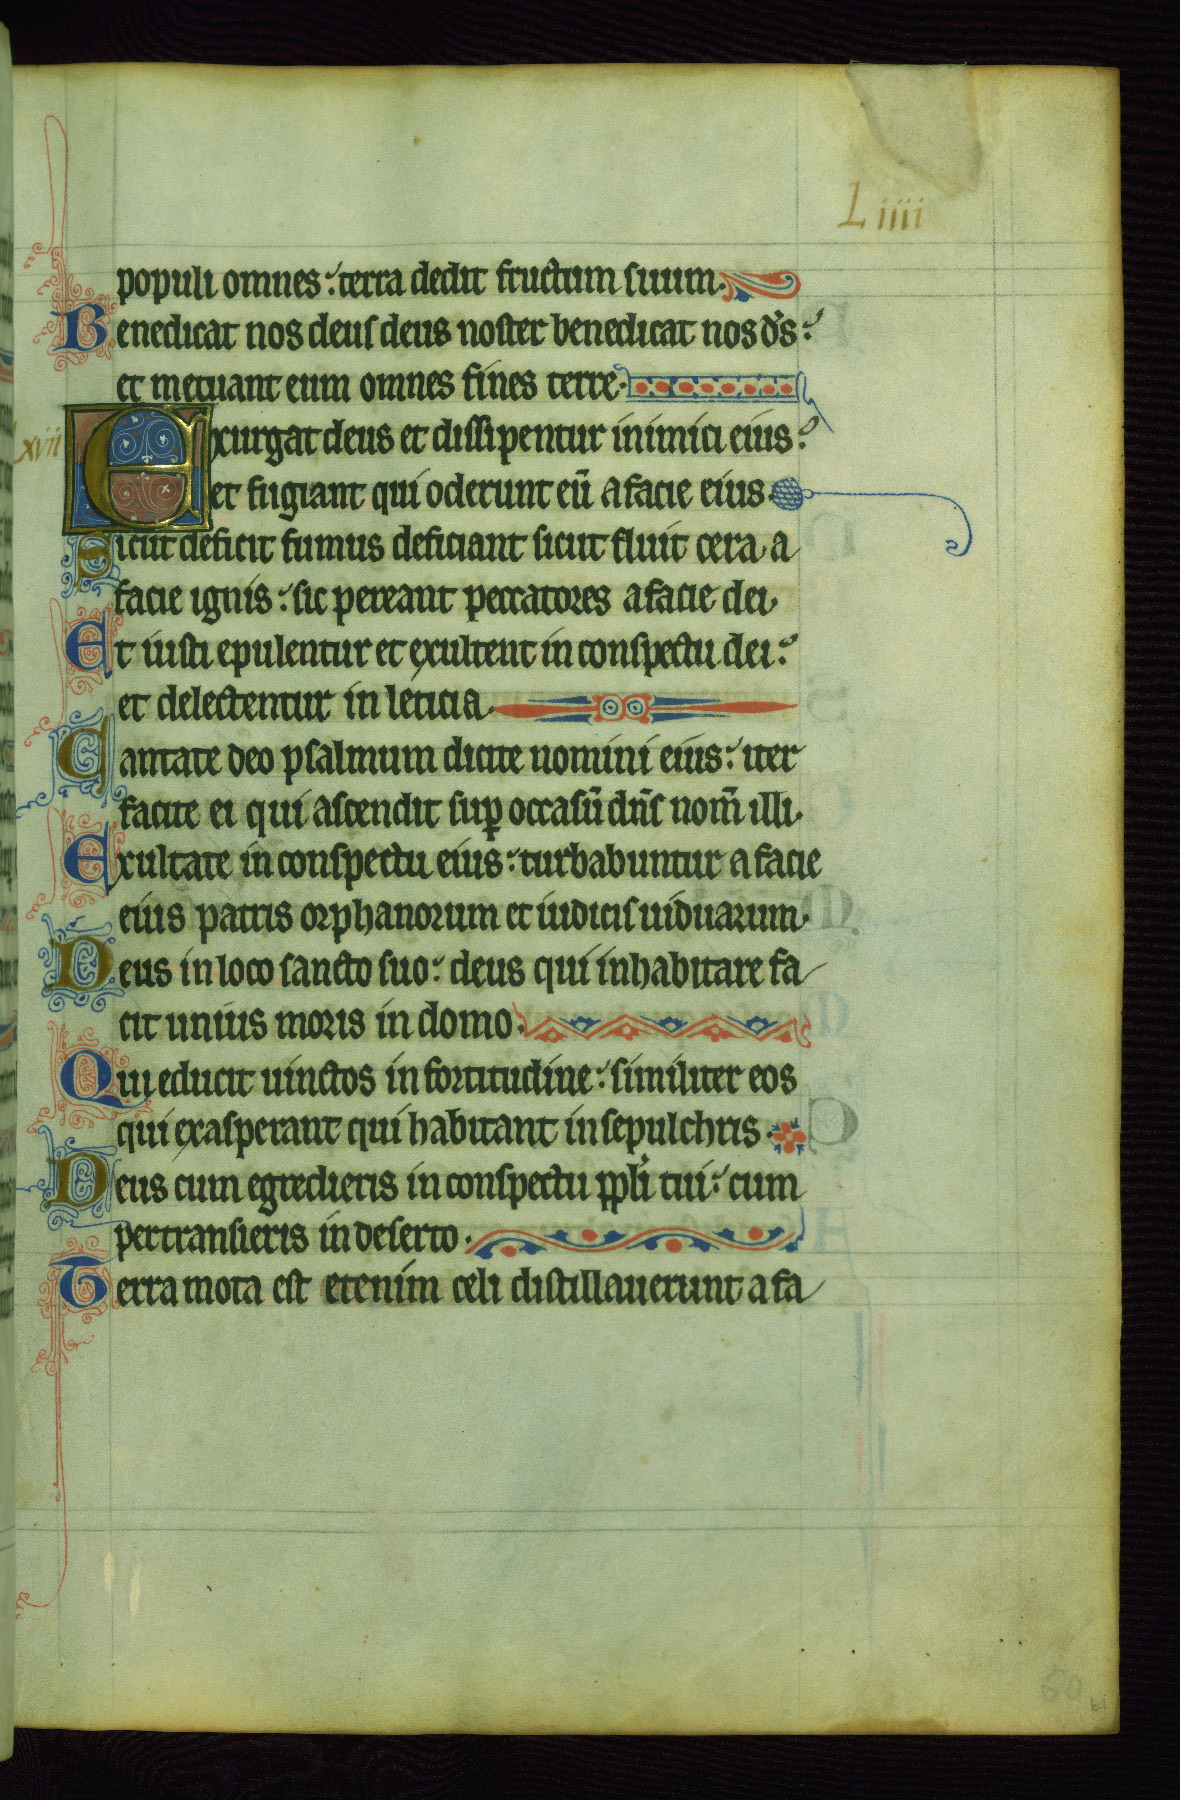 Liiii
populi omnes: terra dedit fructum suum.
Benedicat nos deus deus noster benedicat nos ds̄:
et metuant eum omnes fines terre.
xvii
Exurgat deus et dissipentur inimici eius:
et fugiant qui oderunt eū a facie eius.
Sicut deficit fumus deficiant sicut fluit cera a
facie ignis: sic pereant peccatores a facie dei.
Et iusti epulentur et exultent in conspectu dei:
et delectentur in leticia.
Cantate deo psalmum dicite nomini eius: iter
facite ei qui ascendit suꝑ occasū dn̄s nom̄ illi.
Exultate in conspectu eius: turbabuntur a facie
eius patris orphanorum et iudicis uiduarum.
Deus in loco sancto suo: deus qui inhabitare fa
cit unius moris in domo.
Qui educit uinctos in fortitudine: similiter eos
qui exasperant qui habitant in sepulchris.
Deus cum egredieris in conspectu ppl̄i tui: cum
pertransieris in deserto.
Terra mota est etenim celi distillauerunt a fa
60